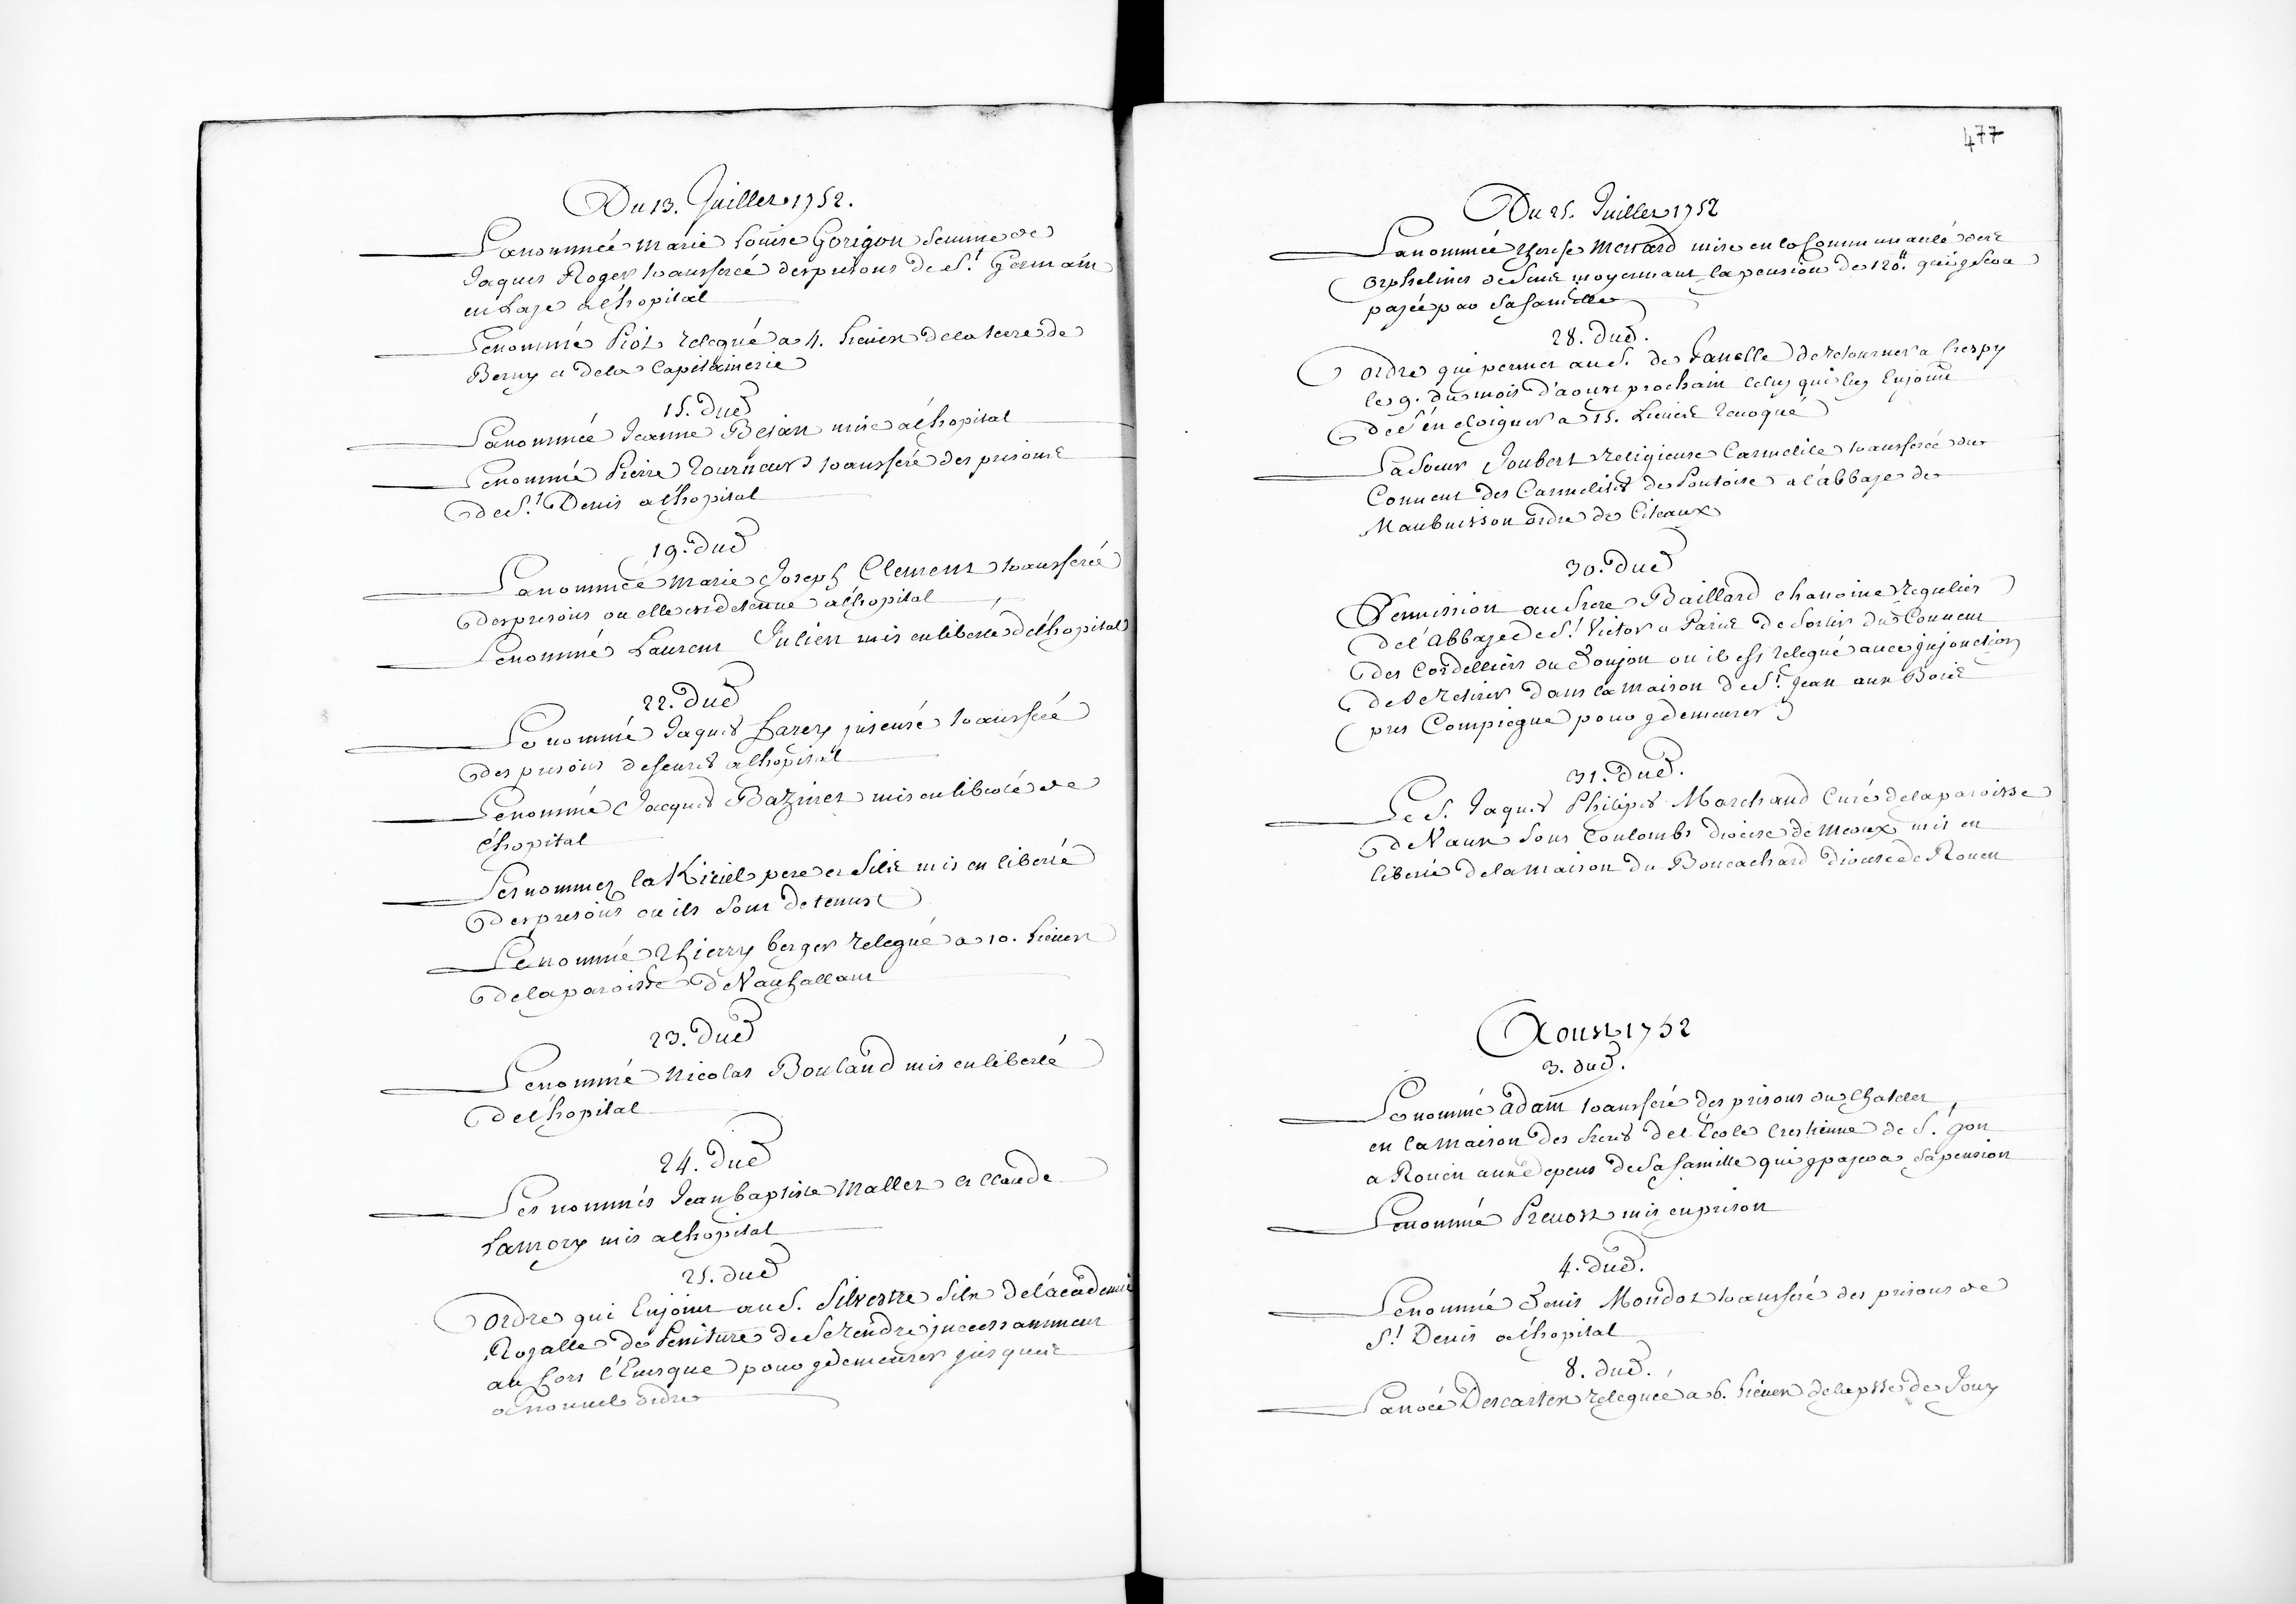 Du 13. Juillet 1752.
La nommée Marie Louise Gorigon femme de
Jaques Roger transferée des prisons de St Germain
en Laye a l'hopital
Le nommé Piot relegué a 4. lieues de la terre de
Berny et de la Capitainerie
15. dud
La nommée Jeanne Bejan mise a l'hopital
Le nommé Pierre Tourneur transferé des prisons
de St Denis a l'hopital
19. dud
La nommée Marie Joseph Clement transferée
des prisons ou elle est detenue a l'hopital
Le nommé Laurent Julien mis en liberté de l'hopital
22. dud
Le nommé Jaques Larcy insensé transferé
des prisons de a l'hopital
Le nommé Jacques Bazinet mis en liberté de
l'hopital
Les nommez la Kiriel pere et fils mis en liberté
des prisons ou ils sont detenus
Le nommé Thierry berger relegué a 10. lieues
de la paroisse de Vauhallant
23. dud
Le nommé Nicolas Bouland mis en liberté
de l'hopital
24. dud
Les nommés Jean baptiste Mallet et Claude
Lamory mis a l'hopital
25. dud
Ordre qui Enjoint au S. Silvestre fils de l'académie
Royalle de Peniture de se rendre incessamment
au fort l'Evesque pour y demeurer jusques
a nouvel ordre
477
Du 25. Juillet 1752
La nommée Therese Menard mise en la Communauté des
Orphelines de moyennant la pension de 120.tt qui y sera
payée par sa famille
28. dud.
Ordre qui permet au S. de Fanelle de retourner a Crespy
le 9. du mois d'aoust prochain celuy qui luy Enjoint
de s'en eloigner a 15. lieues revoqué
La soeur Joubert religieuse Carmelite transferée du
Couvent des Carmelites de Pontoise a l'abbaye de
Maubuisson ordre de Citeaux
30. dud
Permission au frere Baillard chanoine regulier
de l'Abbaye de St Victor a Paris de sortir du Couvent
des Cordelliers du Donjon ou il est relegué avec injonction
de se retirer dans la maison de St Jean aux Bois
pres Compiegne pour y demeurer
31. dud.
Le S. Jaques Philipes Marchand Curé de la paroisse
de Vaux sous Coulombs diocese de Meaux mis en
liberté de la maison du Bourachard diocese de Rouen
Aoust 1752
3. dud.
Le nommé adam transferé des prisons du Chatelet
en la maison des freres de l'Ecole Crestienne de S. yon
a Rouen aux depens de sa famille qui y payera sa pension
Le nommé Prevost mis en prison
4. dud.
Le nommé Denis Mondot transferé des prisons de
St Denis a l'hopital
8. dud.
La née Descartes releguée a 6. lieues de la psse de Jouy